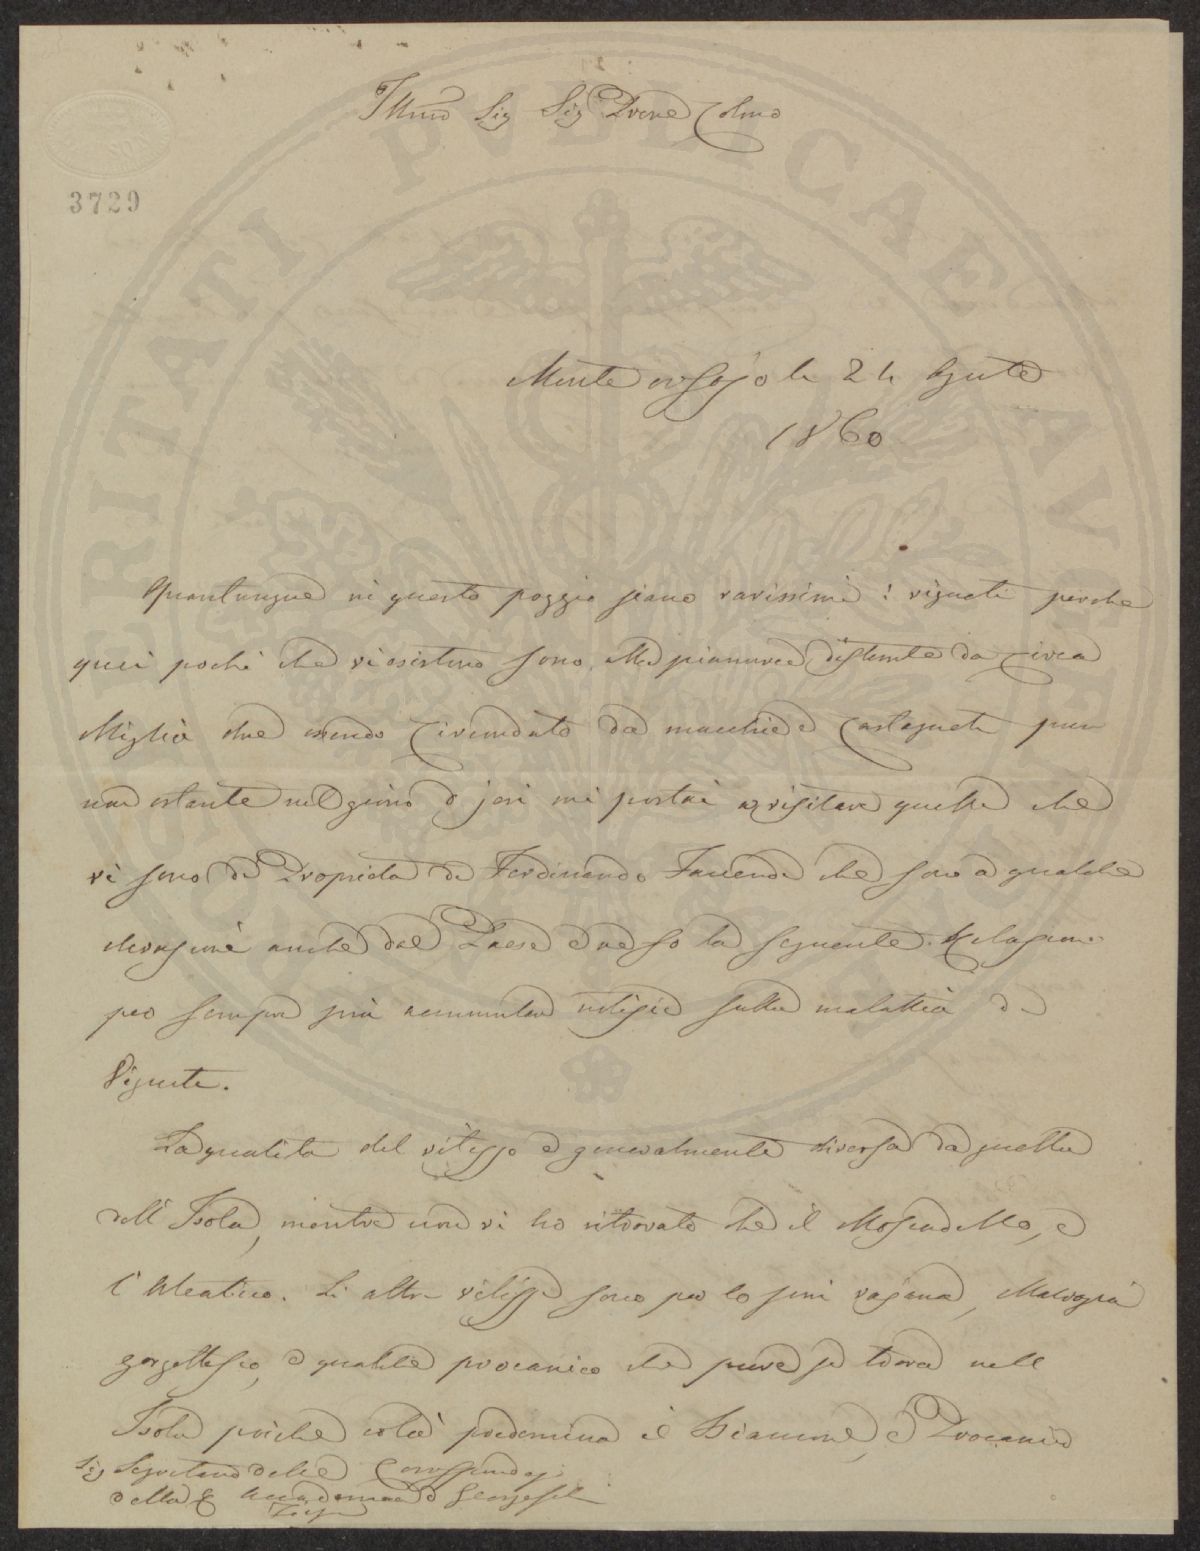 Illmo Sig Sig Prone Colmo
3729
Monteorsajo li 24 Agosto
1860
Quantunque in questo poggio siano rarissimi i vigneti perche
quei pochi che vi esistono sono alla pianura distante da circa
Miglia due essendo circondato da macchie e Castagneti pure
non ostante nel giorno d jeri mi portai a visitare quelle che
vi sono di Proprieta di Ferdinando che sono a qualche
elevazione anche dal Paese e ne fo la seguente Relazione
per sempre più accumulare notizie sulla malattia di
Vigneti.
La qualita del vitigno è generalmente diversa da quella
dell Isola, mentre non vi ho ritrovato che il Moscadello, e
l Aleatico. Li altri vitigni sono per lo più Malvagia
e qualche procanico che pure si trova nell
Isola poiche colà predomina il Biancone, e Procanico
Sig Segretario delle Corrispondenze
della R Accademia d Georgofili